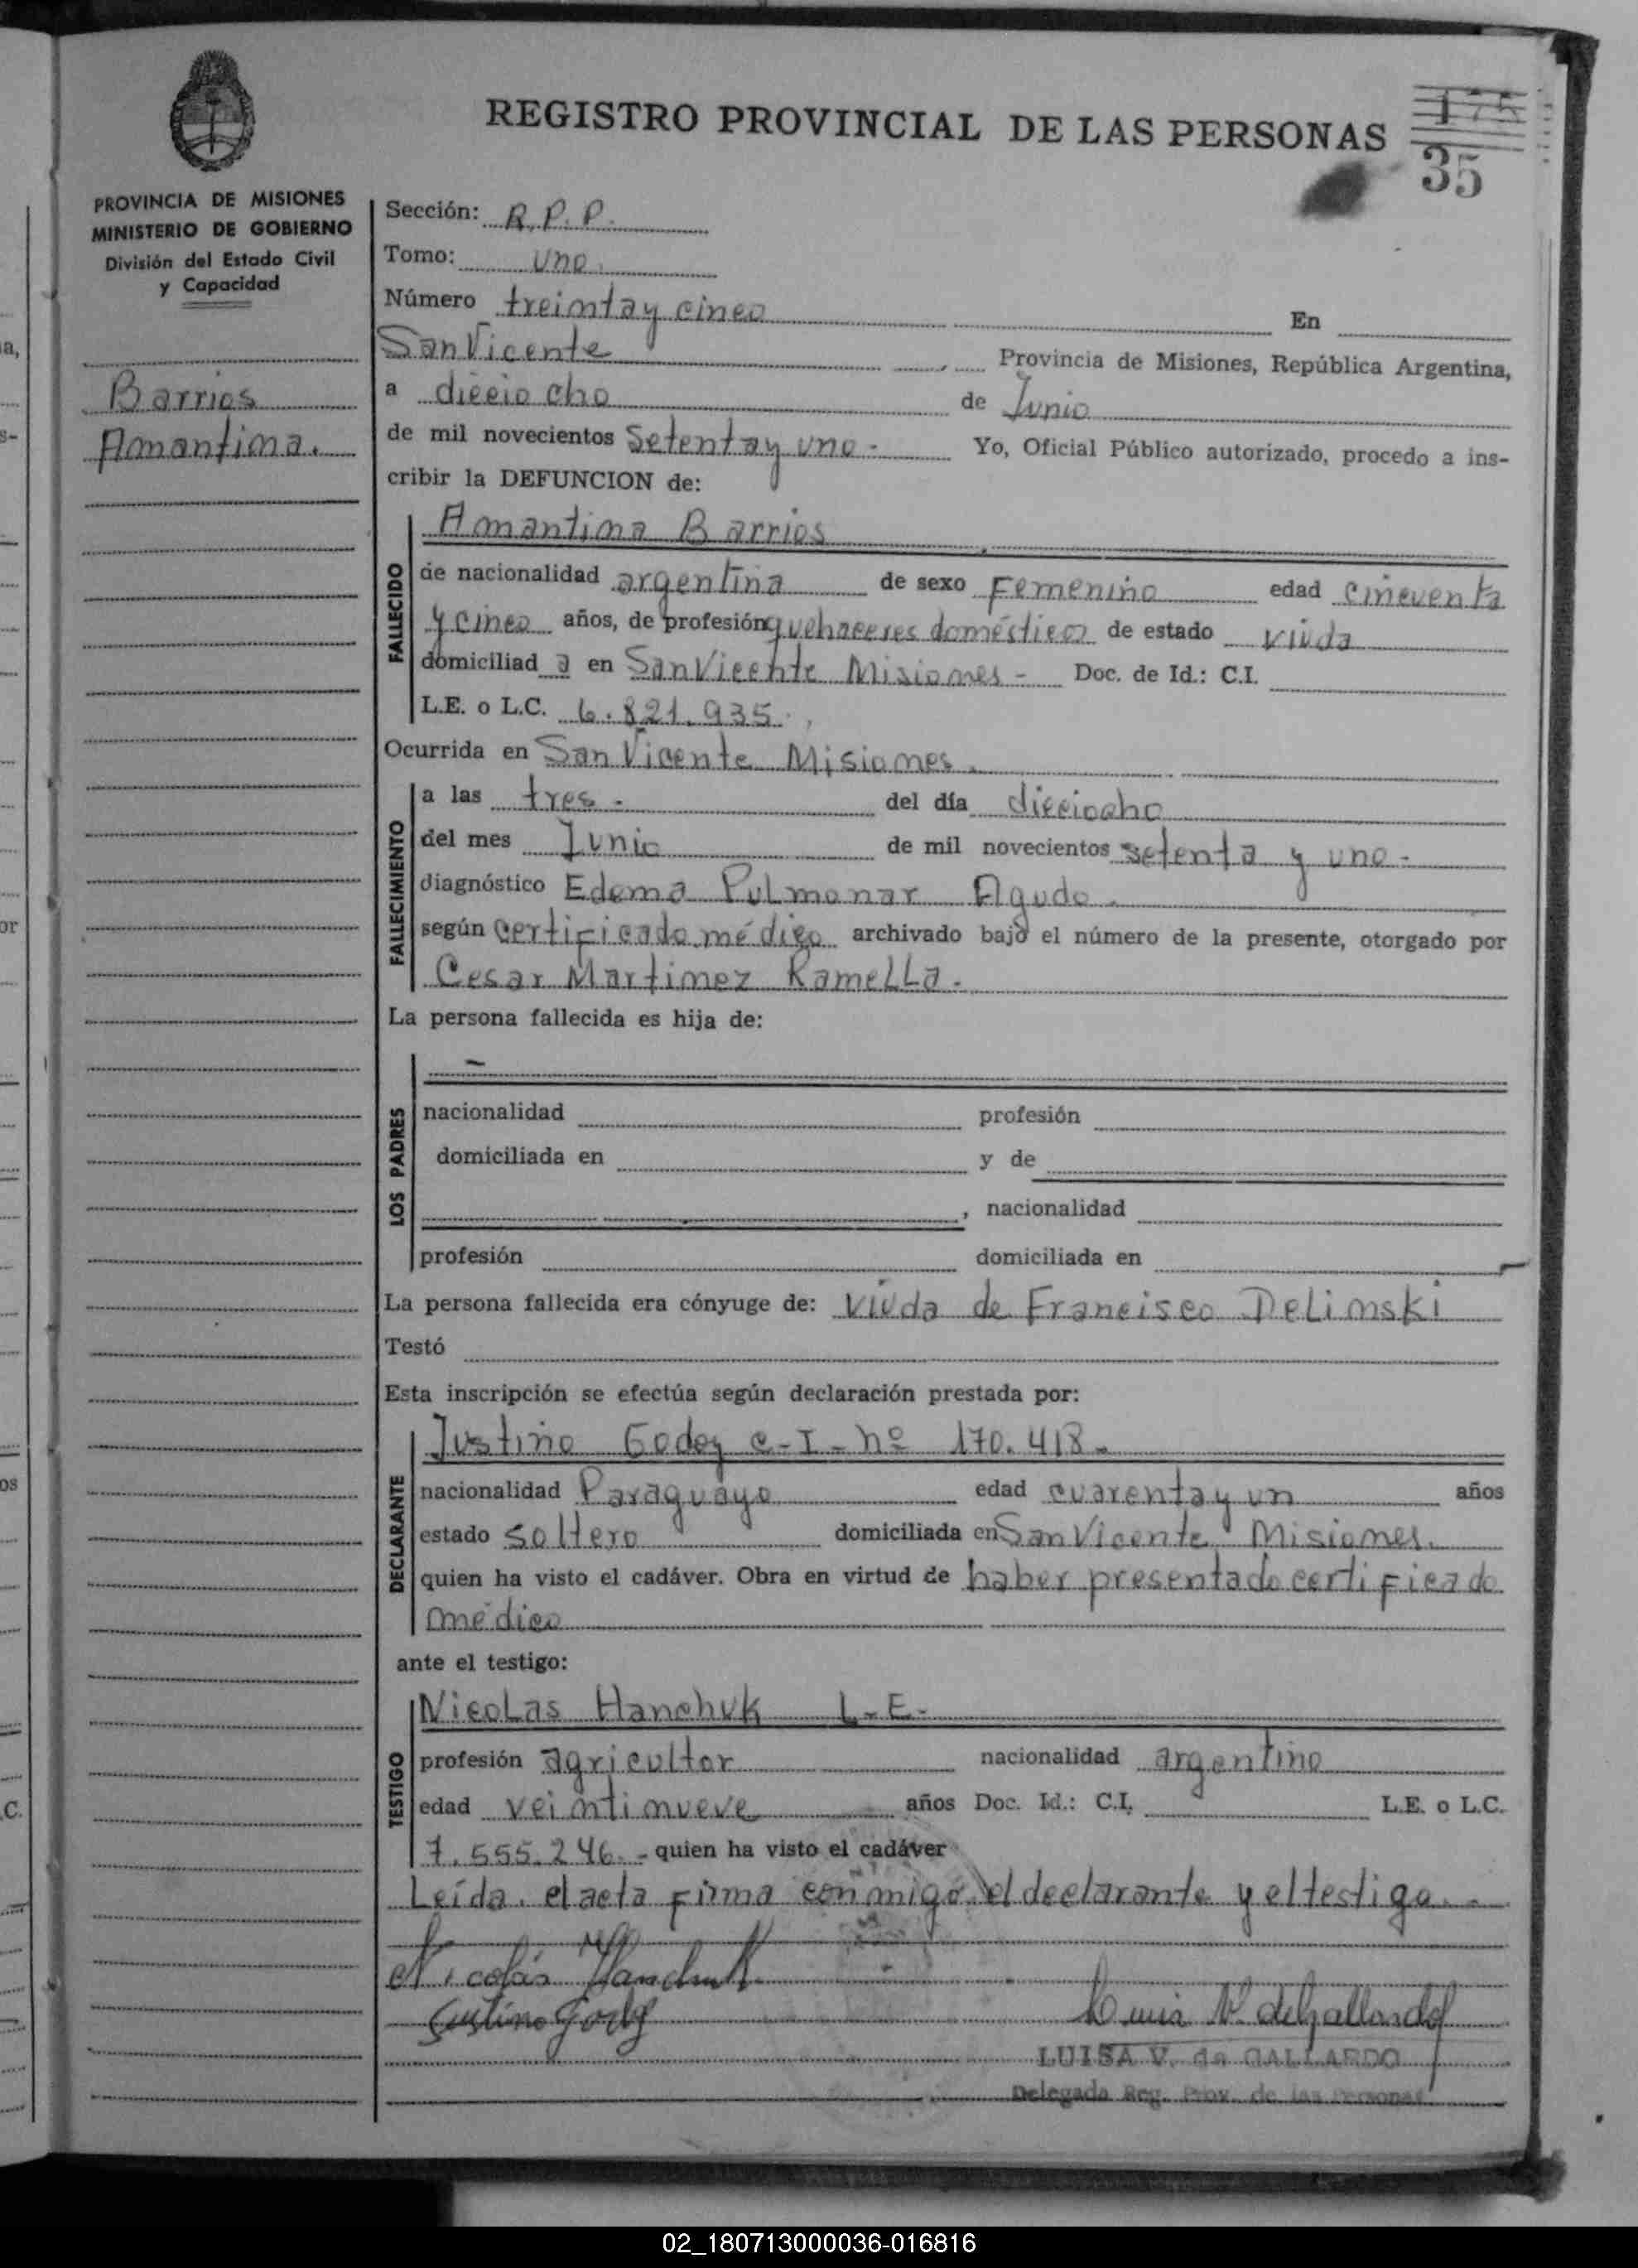 REGISTRO PROVINCIAL DE LAS PERSONAS
175
35
PROVINCIA DE MISIONES
MINISTERIO DE GOBIERNO
División del Estado Civil
y Capacidad
Barrios
Amantina.
Sección: R.P.P.
Tomo: uno.
Número treinta y cinco En
San Vicente Provincia de Misiones, República Argentina,
a dieciocho de Junio
de mil novecientos Setenta y uno.- Yo, Oficial Público autorizado, procedo a ins-
cribir la DEFUNCION de:
FALLECIDO
Amantina Barrios
de nacionalidad argentina de sexo Femenino edad cincuenta
y cinco años, de profesión quehaceres domésticos de estado viuda
domiciliad a en San Vicente Misiones - Doc. de Id.: C.I.
L.E. o L.C. 6.821.935.
Ocurrida en San Vicente Misiones.
FALLECIMIENTO
a las tres.- del día dieciocho
del mes Junio de mil novecientos setenta y uno.-
diagnóstico Edema Pulmonar Agudo.
según certificado médico archivado bajo el número de la presente, otorgado por
Cesar Martinez Ramella.
La persona fallecida es hija de:
LOS PADRES
-
nacionalidad profesión
domiciliada en y de
, nacionalidad
profesión domiciliada en
La persona fallecida era cónyuge de: viuda de Francisco Delinski
Testó
Esta inscripción se efectúa según declaración prestada por:
DECLARANTE
Justino Godoy C-I-nº 170.418.
nacionalidad Paraguayo edad cuarenta y un años
estado soltero domiciliada en San Vicente Misiones.
quien ha visto el cadáver. Obra en virtud de haber presentado certificado
médico
ante el testigo:
TESTIGO
Nicolas Hanchuk L-E-
profesión agricultor nacionalidad argentino
edad veintinueve años Doc. Id.: C.I. L.E. o L.C.
7.555.246.- quien ha visto el cadáver
Leída el acta firma conmigo el declarante y el testigo.-
Nicolás Hanchuk
Justino Godoy
Luisa V. de Gallardo
LUISA V. de GALLARDO
Delegada Reg. Prov. de las Personas
02_180713000036-016816